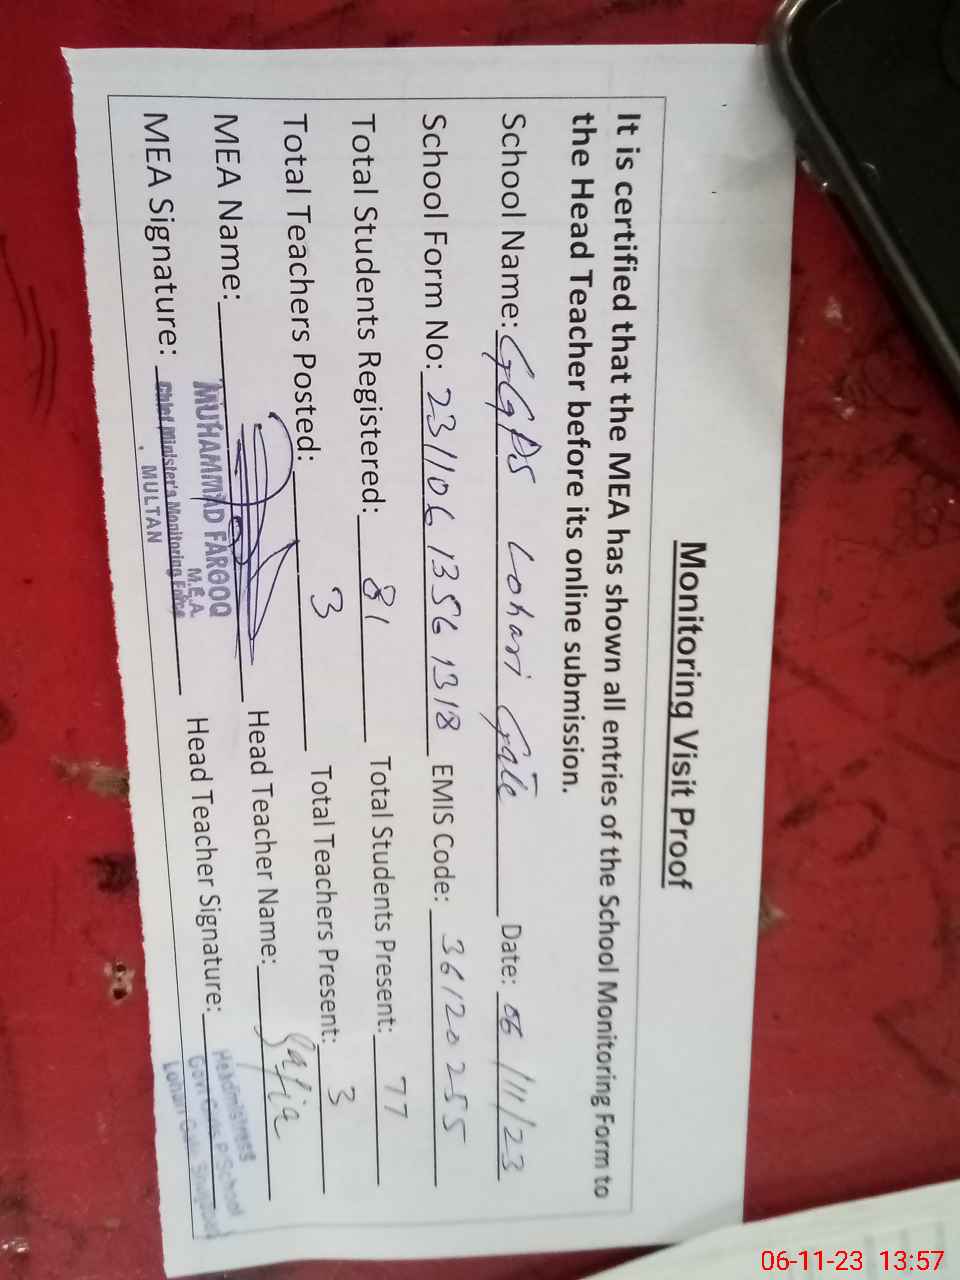 Monitoring Visit Proof
It is certified that the MEA has shown all entries of the School Monitoring Form to
the Head Teacher before its online submission.
School Name: GGPS Lohari Gate Date: 06/11/23
School Form No: 231106 1356 1318 EMIS Code: 36120255
Total Students Registered: 81 Total Students Present: 77
Total Teachers Posted: 3 Total Teachers Present: 3
MEA Name: Head Teacher Name: Safia
MUHAMMAD FAROOQ
M.E.A.
MEA Signature: Head Teacher Signature:
Chief Minister's Monitoring Force
MULTAN
Headmistress
Govt Girls P/School
Lohari Gate
06-11-23 13:57